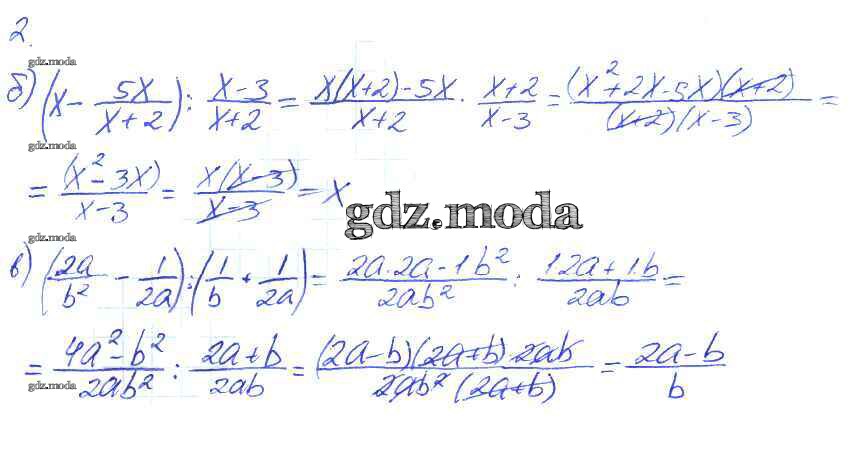 2.
gdz.moda
б) (x - 5x/(x+2)) : (x-3)/(x+2) = (x(x+2)-5x)/(x+2) · (x+2)/(x-3) = ((x²+2x-5x)(x+2))/((x+2)(x-3)) =
gdz.moda
= (x²-3x)/(x-3) = x(x-3)/(x-3) = x
gdz.moda
gdz.moda
в) (2a/b² - 1/2a) : (1/b + 1/2a) = (2a·2a-1b²)/2ab² : (1·2a+1·b)/2ab =
= (4a²-b²)/2ab² : (2a+b)/2ab = ((2a-b)(2a+b)2ab)/(2ab²(2a+b)) = (2a-b)/b
gdz.moda